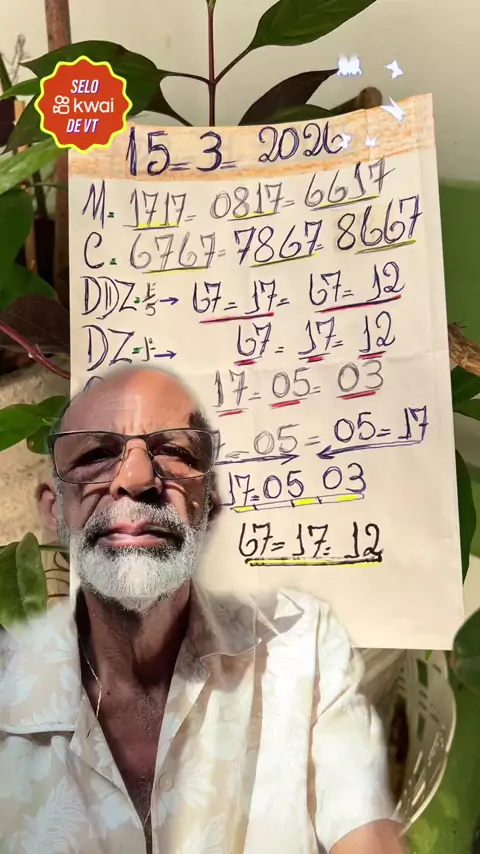 SELO
kwai
DE VT
15-3-2026
M. 1717-0817-6617
C. 6767-7867-8667
DDZ-1/5→ 67=17= 67=12
DZ-1→ 67=17=12
17=05=03
-05=05=17
17=05 03
67=17=12